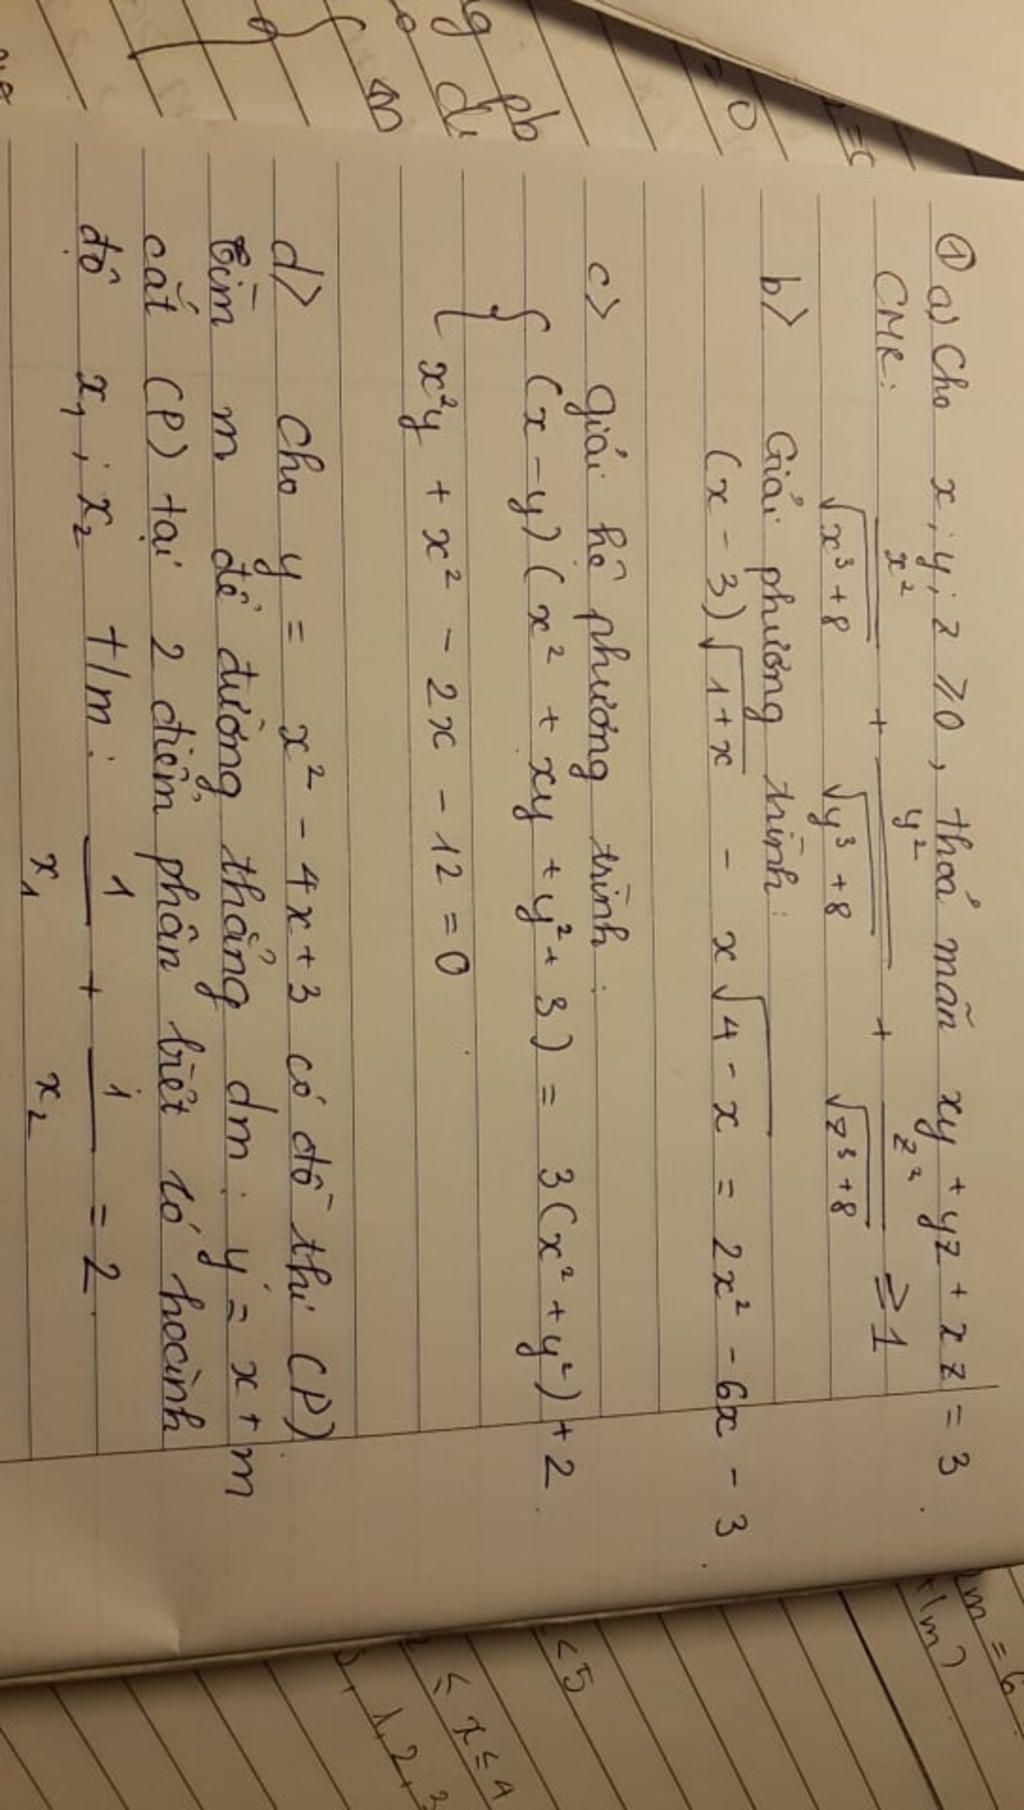 ① a) Cho x; y; z ≥ 0, thoả mãn xy + yz + xz = 3.
CMR: x²/√(x³+8) + y²/√(y³+8) + z²/√(z³+8) ≥ 1
b> Giải phương trình:
(x - 3)√(1+x) - x√(4-x) = 2x² - 6x - 3.
c> giải hệ phương trình:
{ (x - y)(x² + xy + y² + 3) = 3(x² + y²) + 2.
x²y + x² - 2x - 12 = 0
d> cho y = x² - 4x + 3 có đồ thị (P)
Tìm m để đường thẳng dm: y = x + m
cắt (P) tại 2 điểm phân biệt có hoành
độ x₁; x₂ t/m: 1/x₁ + 1/x₂ = 2.
= 0
pb
m = 6
t/m)
< 5
≤ x ≤ 4
1, 2, 3